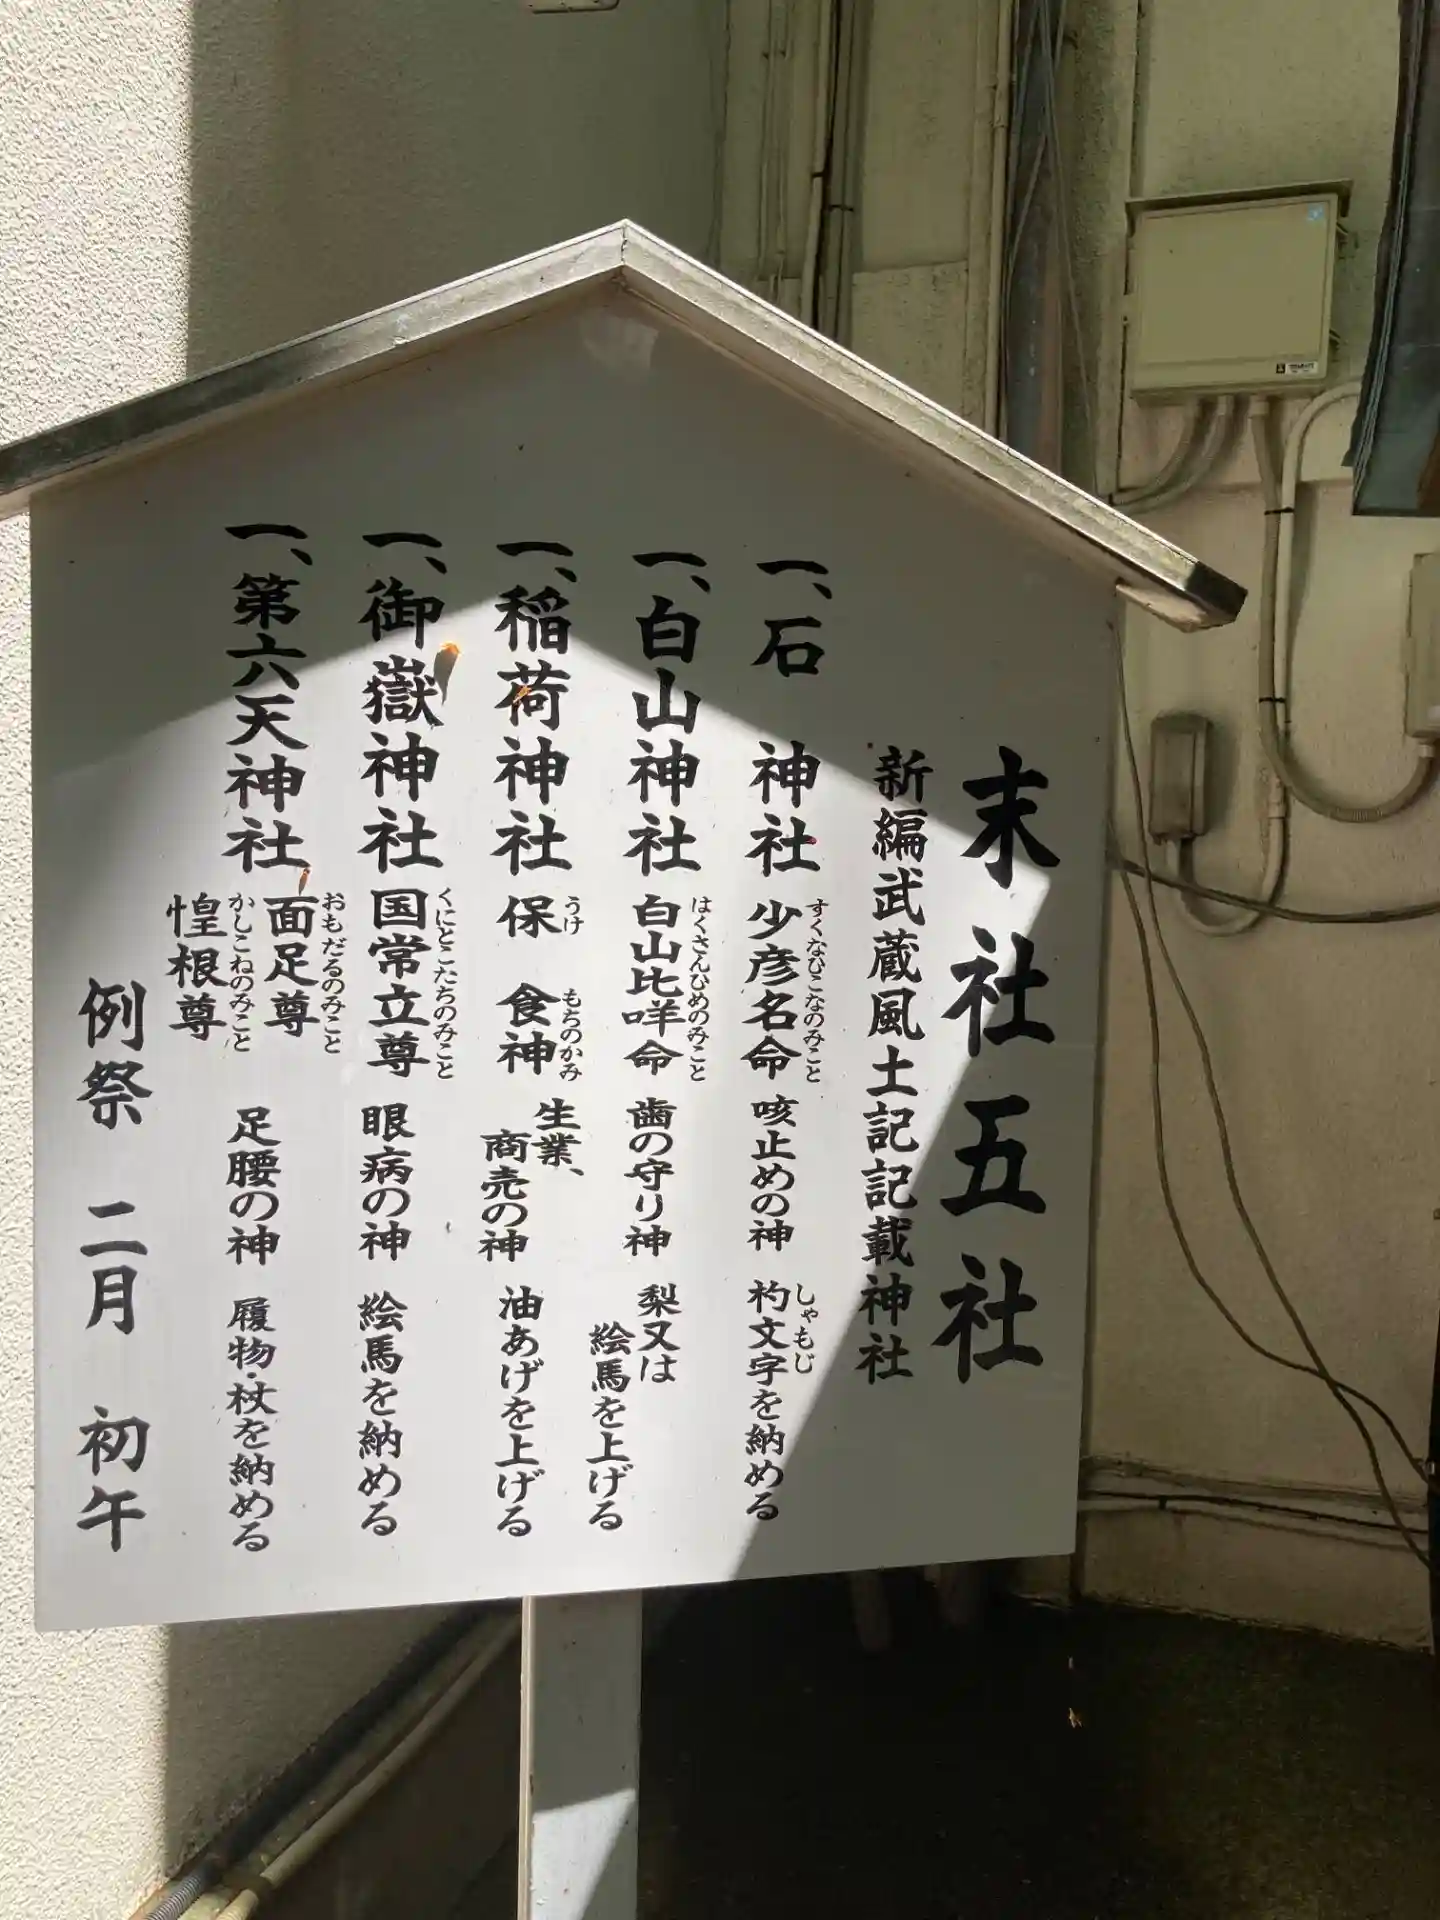 末社五社
新編武蔵風土記記載神社
一、石　神社　少彦名命　咳止めの神　杓文字を納める
すくなひこなのみこと
しゃもじ
一、白山神社　白山比咩命　歯の守り神　梨又は
絵馬を上げる
はくさんひめのみこと
一、稲荷神社　保　食神　生業、
商売の神　油あげを上げる
うけ　もちのかみ
一、御嶽神社　国常立尊　眼病の神　絵馬を納める
くにとこたちのみこと
一、第六天神社　面足尊
おもだるのみこと
惶根尊
かしこねのみこと
足腰の神　履物・杖を納める
例祭　二月　初午